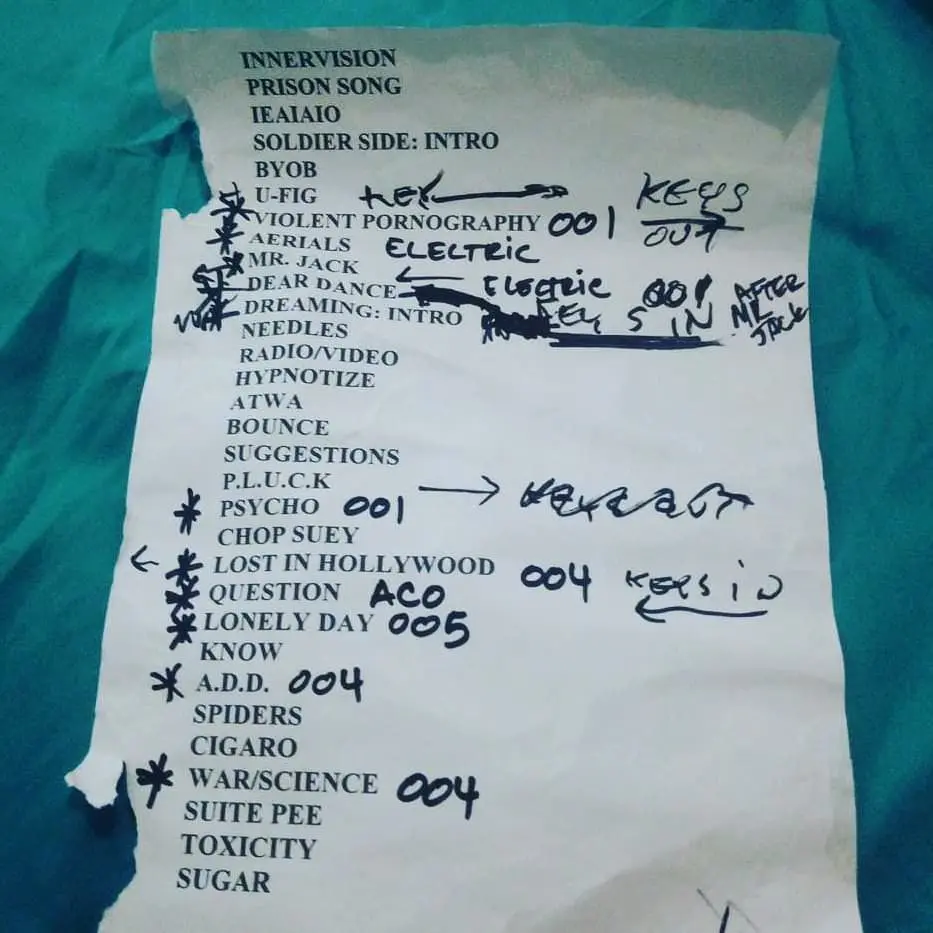 INNERVISION
PRISON SONG
IEAIAIO
SOLDIER SIDE: INTRO
BYOB
U-FIG KEY KEYS
VIOLENT PORNOGRAPHY 001 OUT
AERIALS ELECTRIC
MR. JACK
DEAR DANCE ELECTRIC 001 AFTER
DREAMING: INTRO S IN JACK
NEEDLES
RADIO/VIDEO
HYPNOTIZE
ATWA
BOUNCE
SUGGESTIONS
P.L.U.C.K
* PSYCHO 001
CHOP SUEY
* LOST IN HOLLYWOOD 004 KEYS IN
* QUESTION ACO
* LONELY DAY 005
KNOW
* A.D.D. 004
SPIDERS
CIGARO
* WAR/SCIENCE 004
SUITE PEE
TOXICITY
SUGAR